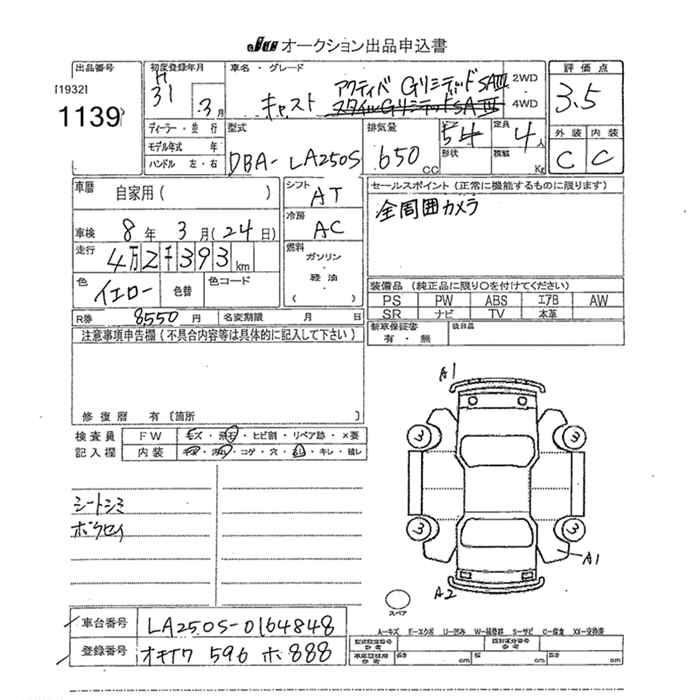 JU オークション出品申込書
出品番号
[1932]
1139
初度登録年月
H
31
3月
車名・グレード
アクティバ Gリミテッド SAⅢ
キャスト スタイルGリミテッドSAⅢ
2WD
4WD
評価点
3.5
外装 内装
C C
ディーラー・並行
モデル年式 年
ハンドル 左・右
型式
DBA-LA250S
排気量
650 CC
54
形状
定員
4人
積載
Kg
車歴
自家用( )
車検 8年 3月(24日)
走行
4万2千393km
色
イエロー
色替
色コード
シフト
AT
冷房
AC
燃料
ガソリン
・
軽油
( )
セールスポイント(正常に機能するものに限ります)
全周囲カメラ
装備品(純正品に限り〇を付けてください)
PS PW ABS エアB AW
SR ナビ TV 本革
R券 8550円
名変期限 月 日
新車保証書
有・無
後日品
注意事項申告欄(不具合内容等は具体的に記入して下さい)
修復歴 有[箇所 ]
検査員
記入欄
FW キズ・飛石・ヒビ割・リペア跡・×要
内装 キズ・汚れ・コゲ・穴・スレ・キレ・積レ
シートシミ
ボウセイ
A1
3 3
3 3
A1
A2
スペア
A―キズ E―エクボ U―凹み W―補修跡 S―サビ C―腐食 XX―交換済
車台番号 LA250S-0164848
登録番号 オキナワ 596 ホ 888
長さ cm 幅 cm 高さ cm